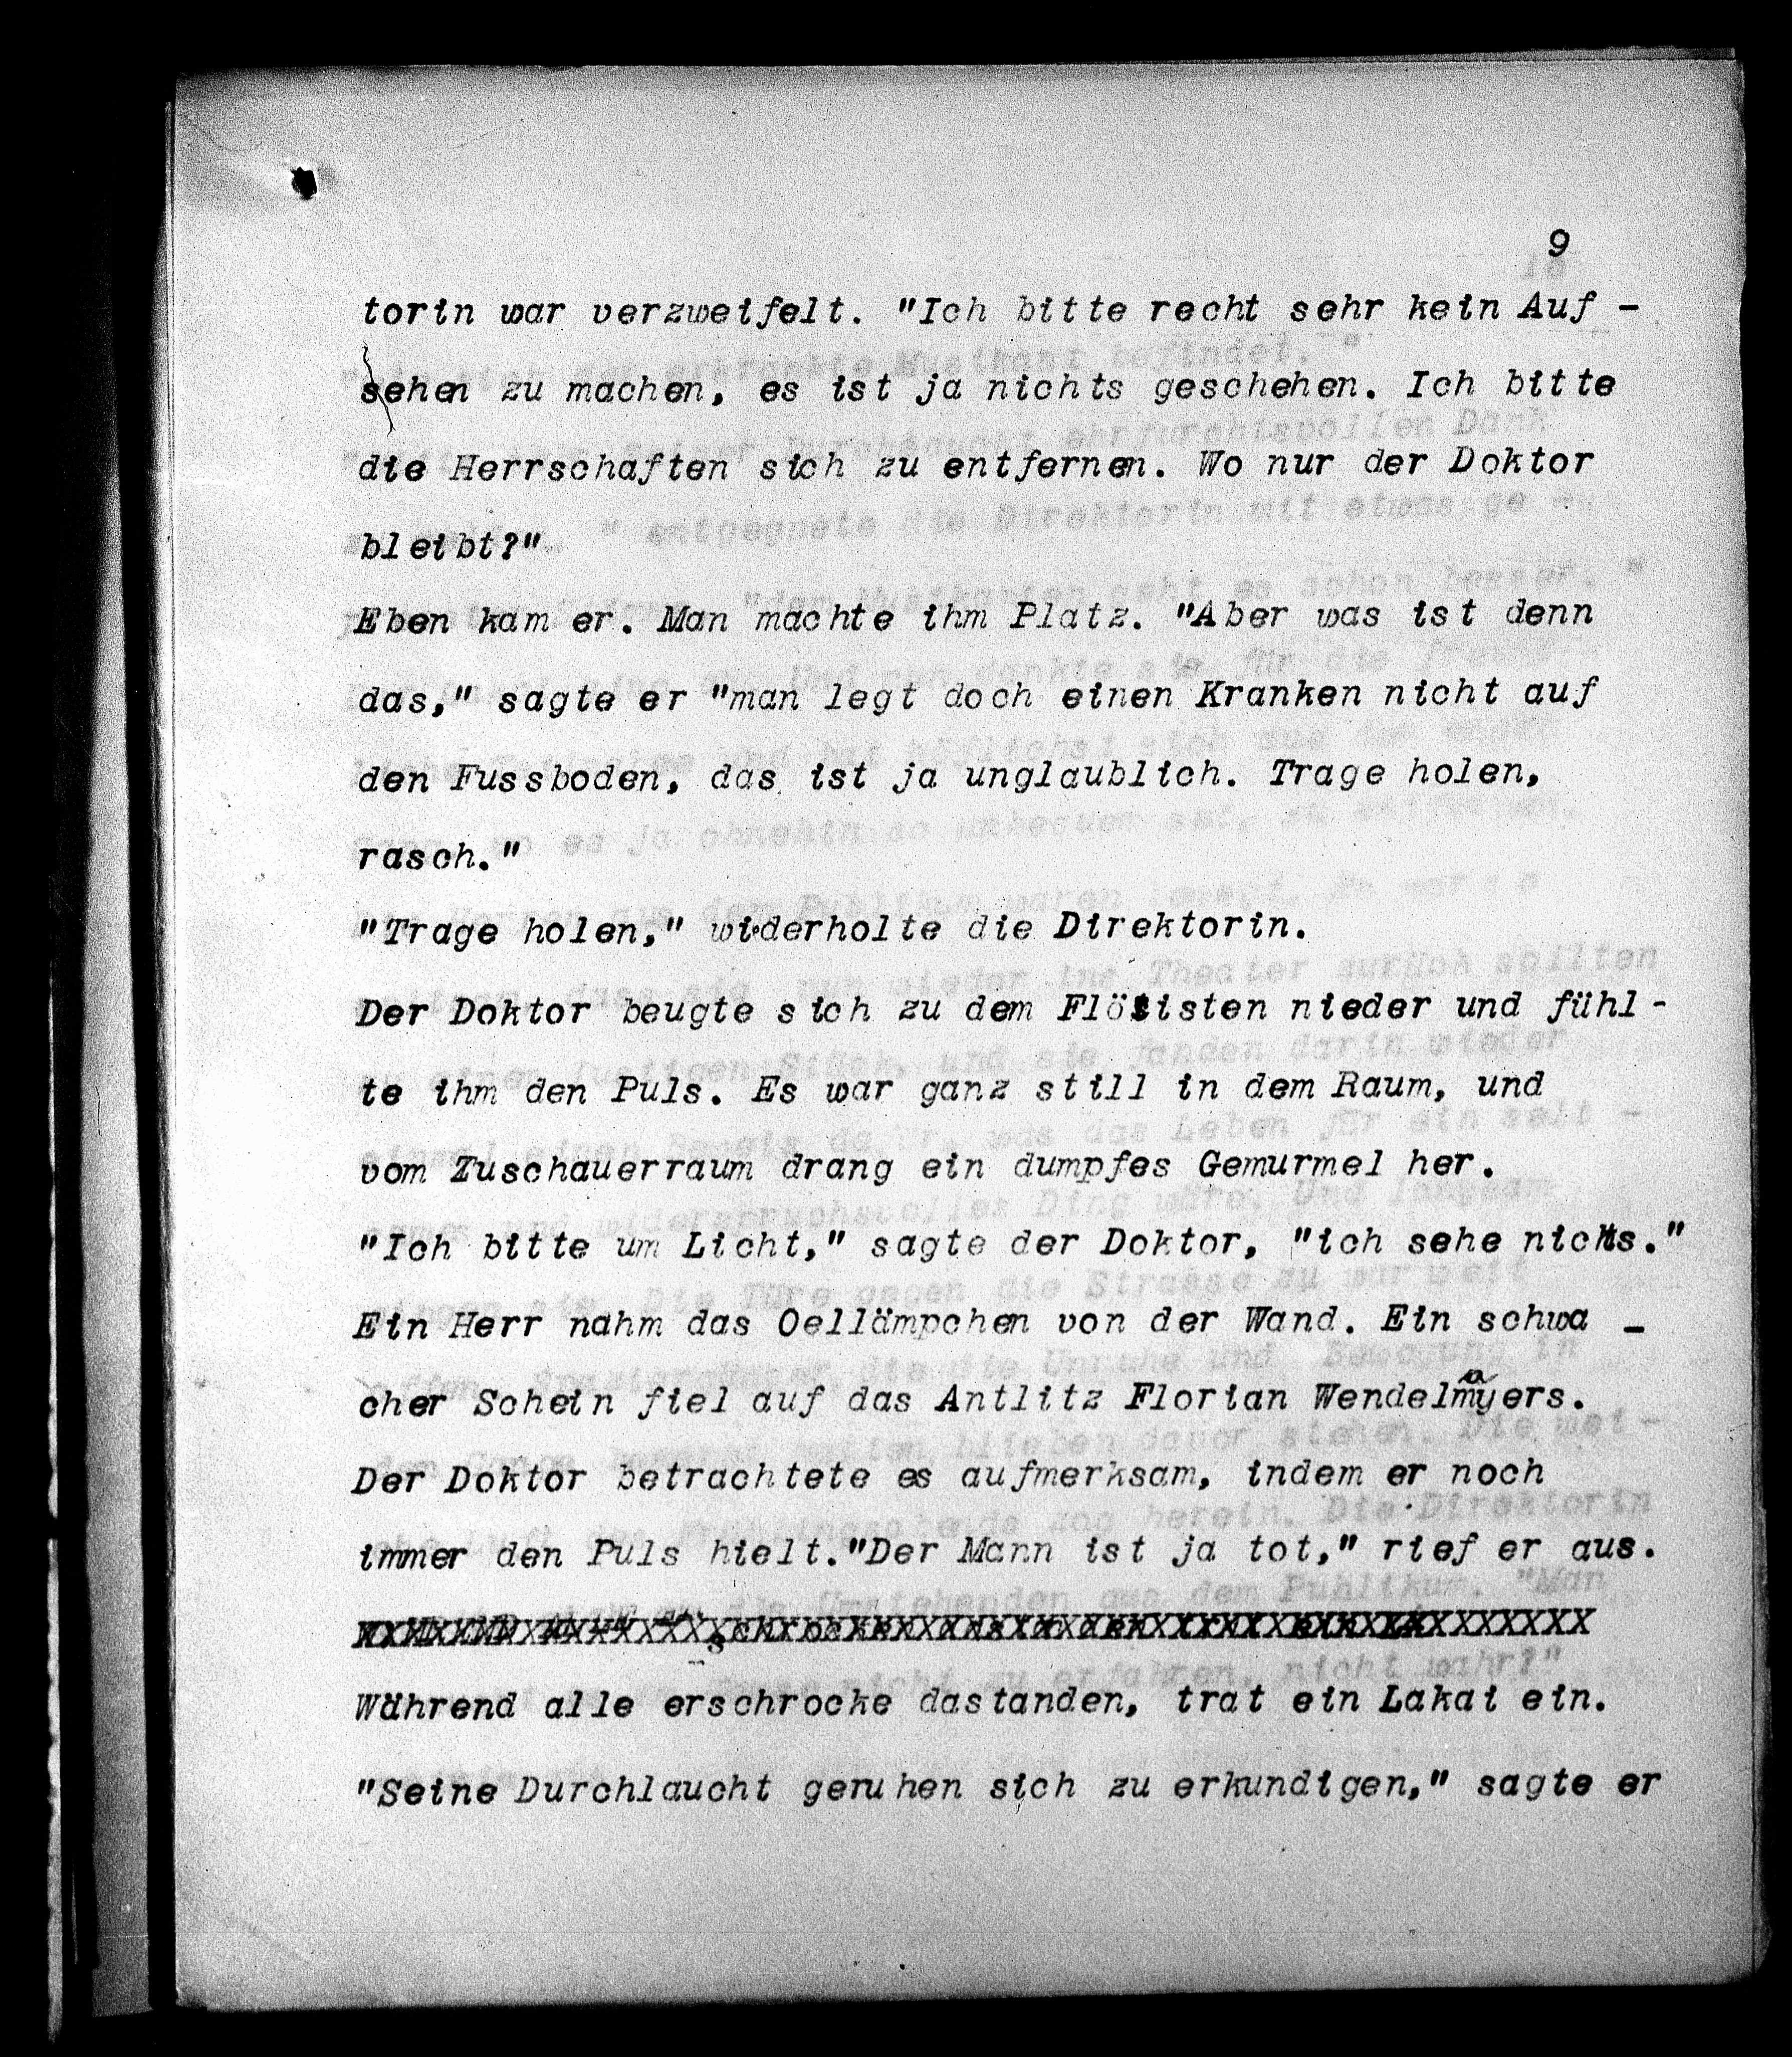 9
torin war verzweifelt. "Ich bitte recht sehr kein Auf -
sehen zu machen, es ist ja nichts geschehen. Ich bitte
die Herrschaften sich zu entfernen. Wo nur der Doktor
bleibt?"
Eben kam er. Man machte ihm Platz. "Aber was ist denn
das," sagte er "man legt doch einen Kranken nicht auf
den Fussboden, das ist ja unglaublich. Trage holen,
rasch."
"Trage holen," wiederholte die Direktorin.
Der Doktor beugte sich zu dem Flötisten nieder und fühl -
te ihm den Puls. Es war ganz still in dem Raum, und
vom Zuschauerraum drang ein dumpfes Gemurmel her.
"Ich bitte um Licht," sagte der Doktor, "ich sehe nichts."
Ein Herr nahm das Oellämpchen von der Wand. Ein schwa -
cher Schein fiel auf das Antlitz Florian Wendelmayers.
Der Doktor betrachtete es aufmerksam, indem er noch
immer den Puls hielt."Der Mann ist ja tot," rief er aus.
Während alle erschrocke dastanden, trat ein Lakai ein.
"Seine Durchlaucht geruhen sich zu erkundigen," sagte er